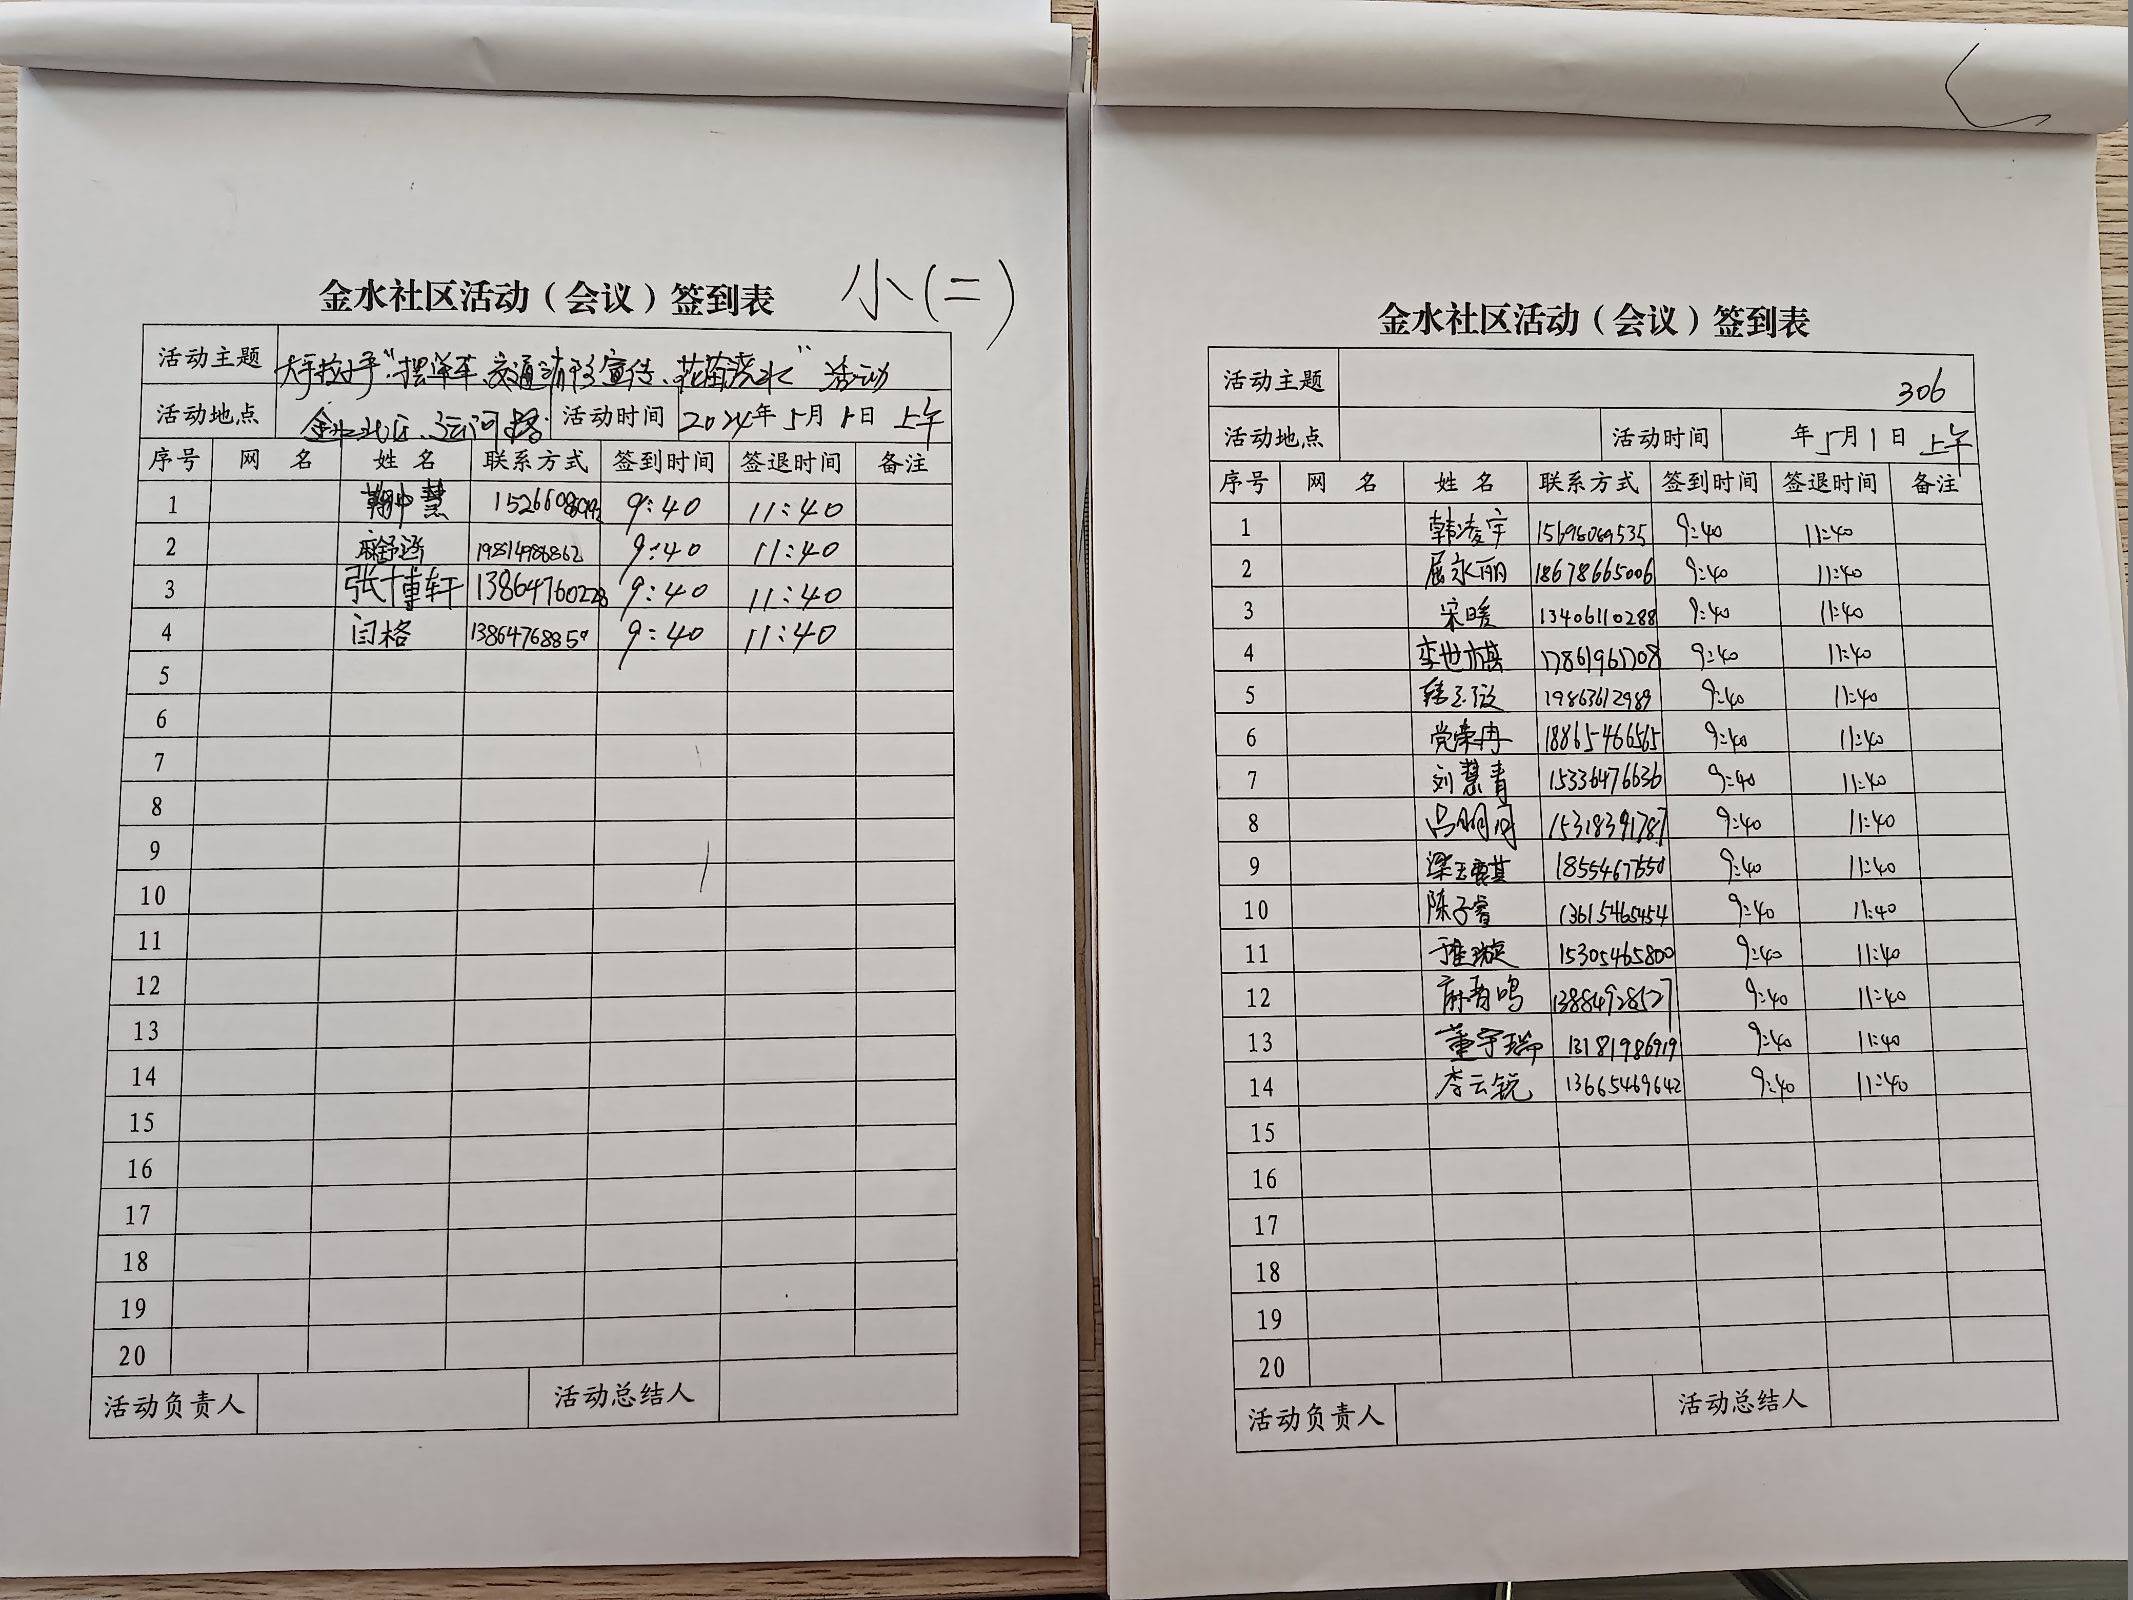 金水社区活动（会议）签到表 小(二)
活动主题 大手拉小手"摆单车、交通消防宣传、花苗浇水"活动
活动地点 金水社区、运河路 活动时间 2024年5月1日 上午
序号 网 名 姓 名 联系方式 签到时间 签退时间 备注
1 9:40 11:40
2 麻舒涵 19814986862 9:40 11:40
3 张博轩 13864760228 9:40 11:40
4 闫格 9:40 11:40
5
6
7
8
9
10
11
12
13
14
15
16
17
18
19
20
活动负责人 活动总结人
金水社区活动（会议）签到表
活动主题 306
活动地点 活动时间 年5月1日 上午
序号 网 名 姓 名 联系方式 签到时间 签退时间 备注
1 韩凌宇 15698089535 9:40 11:40
2 屈永丽 18678665006 9:40 11:40
3 宋暖 13406110288 9:40 11:40
4 李世棋 17861961708 9:40 11:40
5 19863612989 9:40 11:40
6 党荣冉 18865466565 9:40 11:40
7 刘慧青 15336476636 9:40 11:40
8 吕明月 15318391787 9:40 11:40
9 梁玉麒 18554677550 9:40 11:40
10 陈子睿 13615465454 9:40 11:40
11 15305465800 9:40 11:40
12 13884928527 9:40 11:40
13 董宇瑞 13181986919 9:40 11:40
14 李云锐 13665469642 9:40 11:40
15
16
17
18
19
20
活动负责人 活动总结人